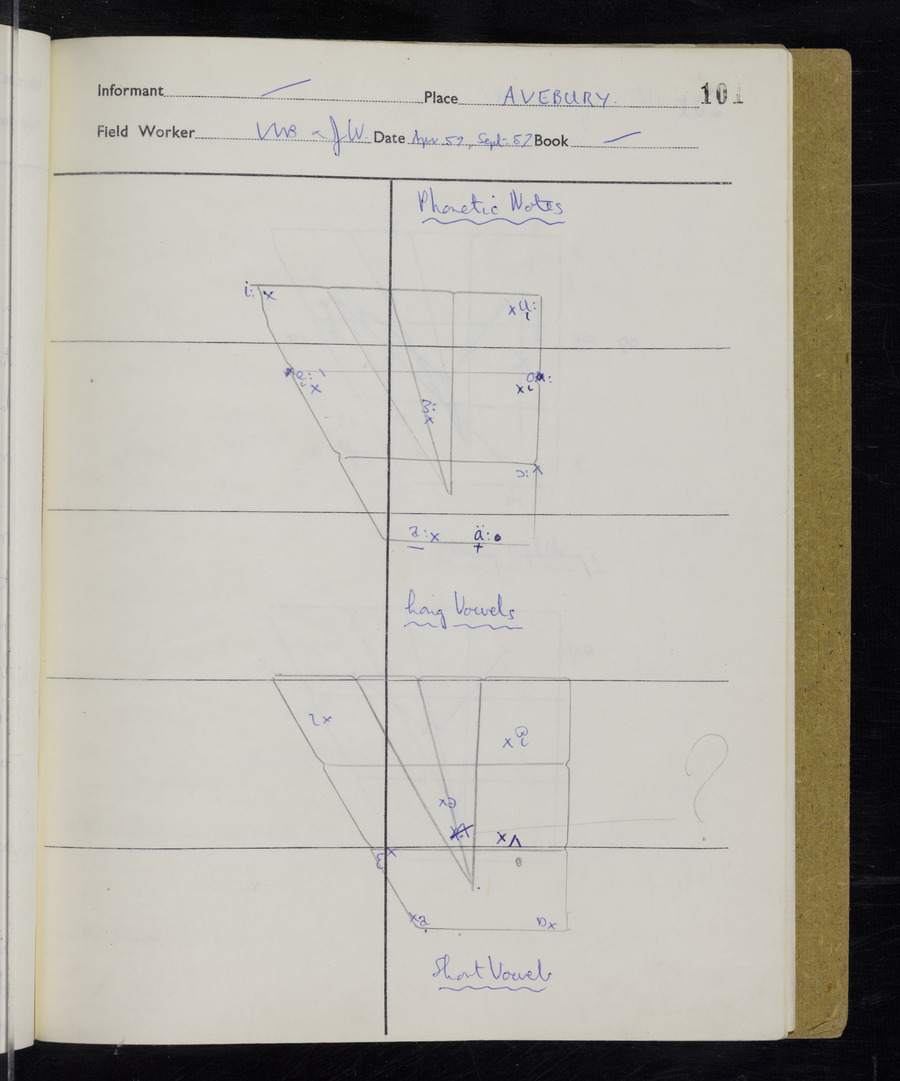 Informant Place AVEBURY. 101
Field Worker Date Apr 57, Sept. 57 Book
Phonetic Notes
i: x x u:
e: x x o:
ɜ: x
ɔ: x
a: x ä:
Long Vowels
ɩ x
x ə
x ʌ
ɛ x
x a ɒ x
?
Short Vowels